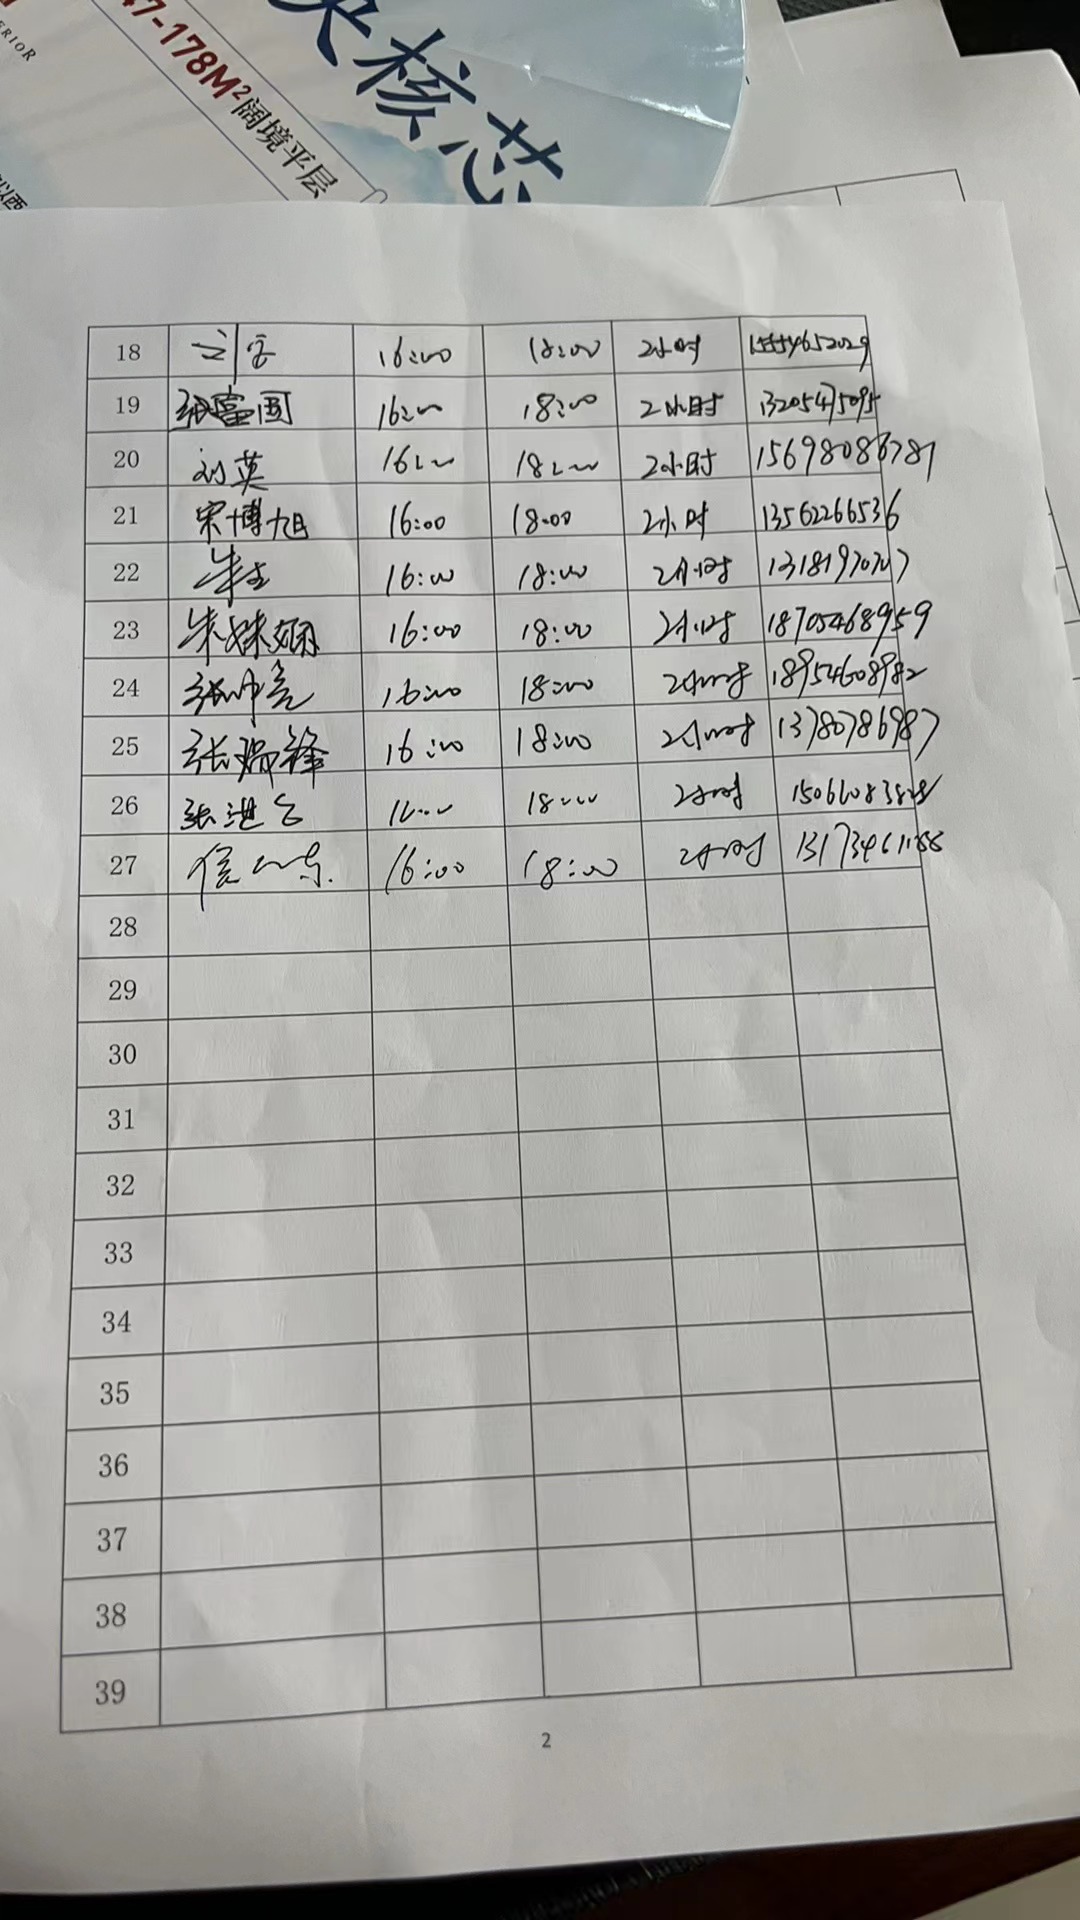 ERIOR
47-178M²阔境平层
央核芯
以西
18 16:00 18:00 2小时
19 张富国 16:00 18:00 2小时 13205475095
20 刘英 16:00 18:00 2小时 15698086781
21 宋博旭 16:00 18:00 2小时 13562266536
22 16:00 18:00 2小时
23 朱姝娴 16:00 18:00 2小时 18705468959
24 张 16:00 18:00 2小时 18954608982
25 张瑞锋 16:00 18:00 2小时 13780786987
26 张进 16:00 18:00 2小时
27 16:00 18:00 2小时
28
29
30
31
32
33
34
35
36
37
38
39
2